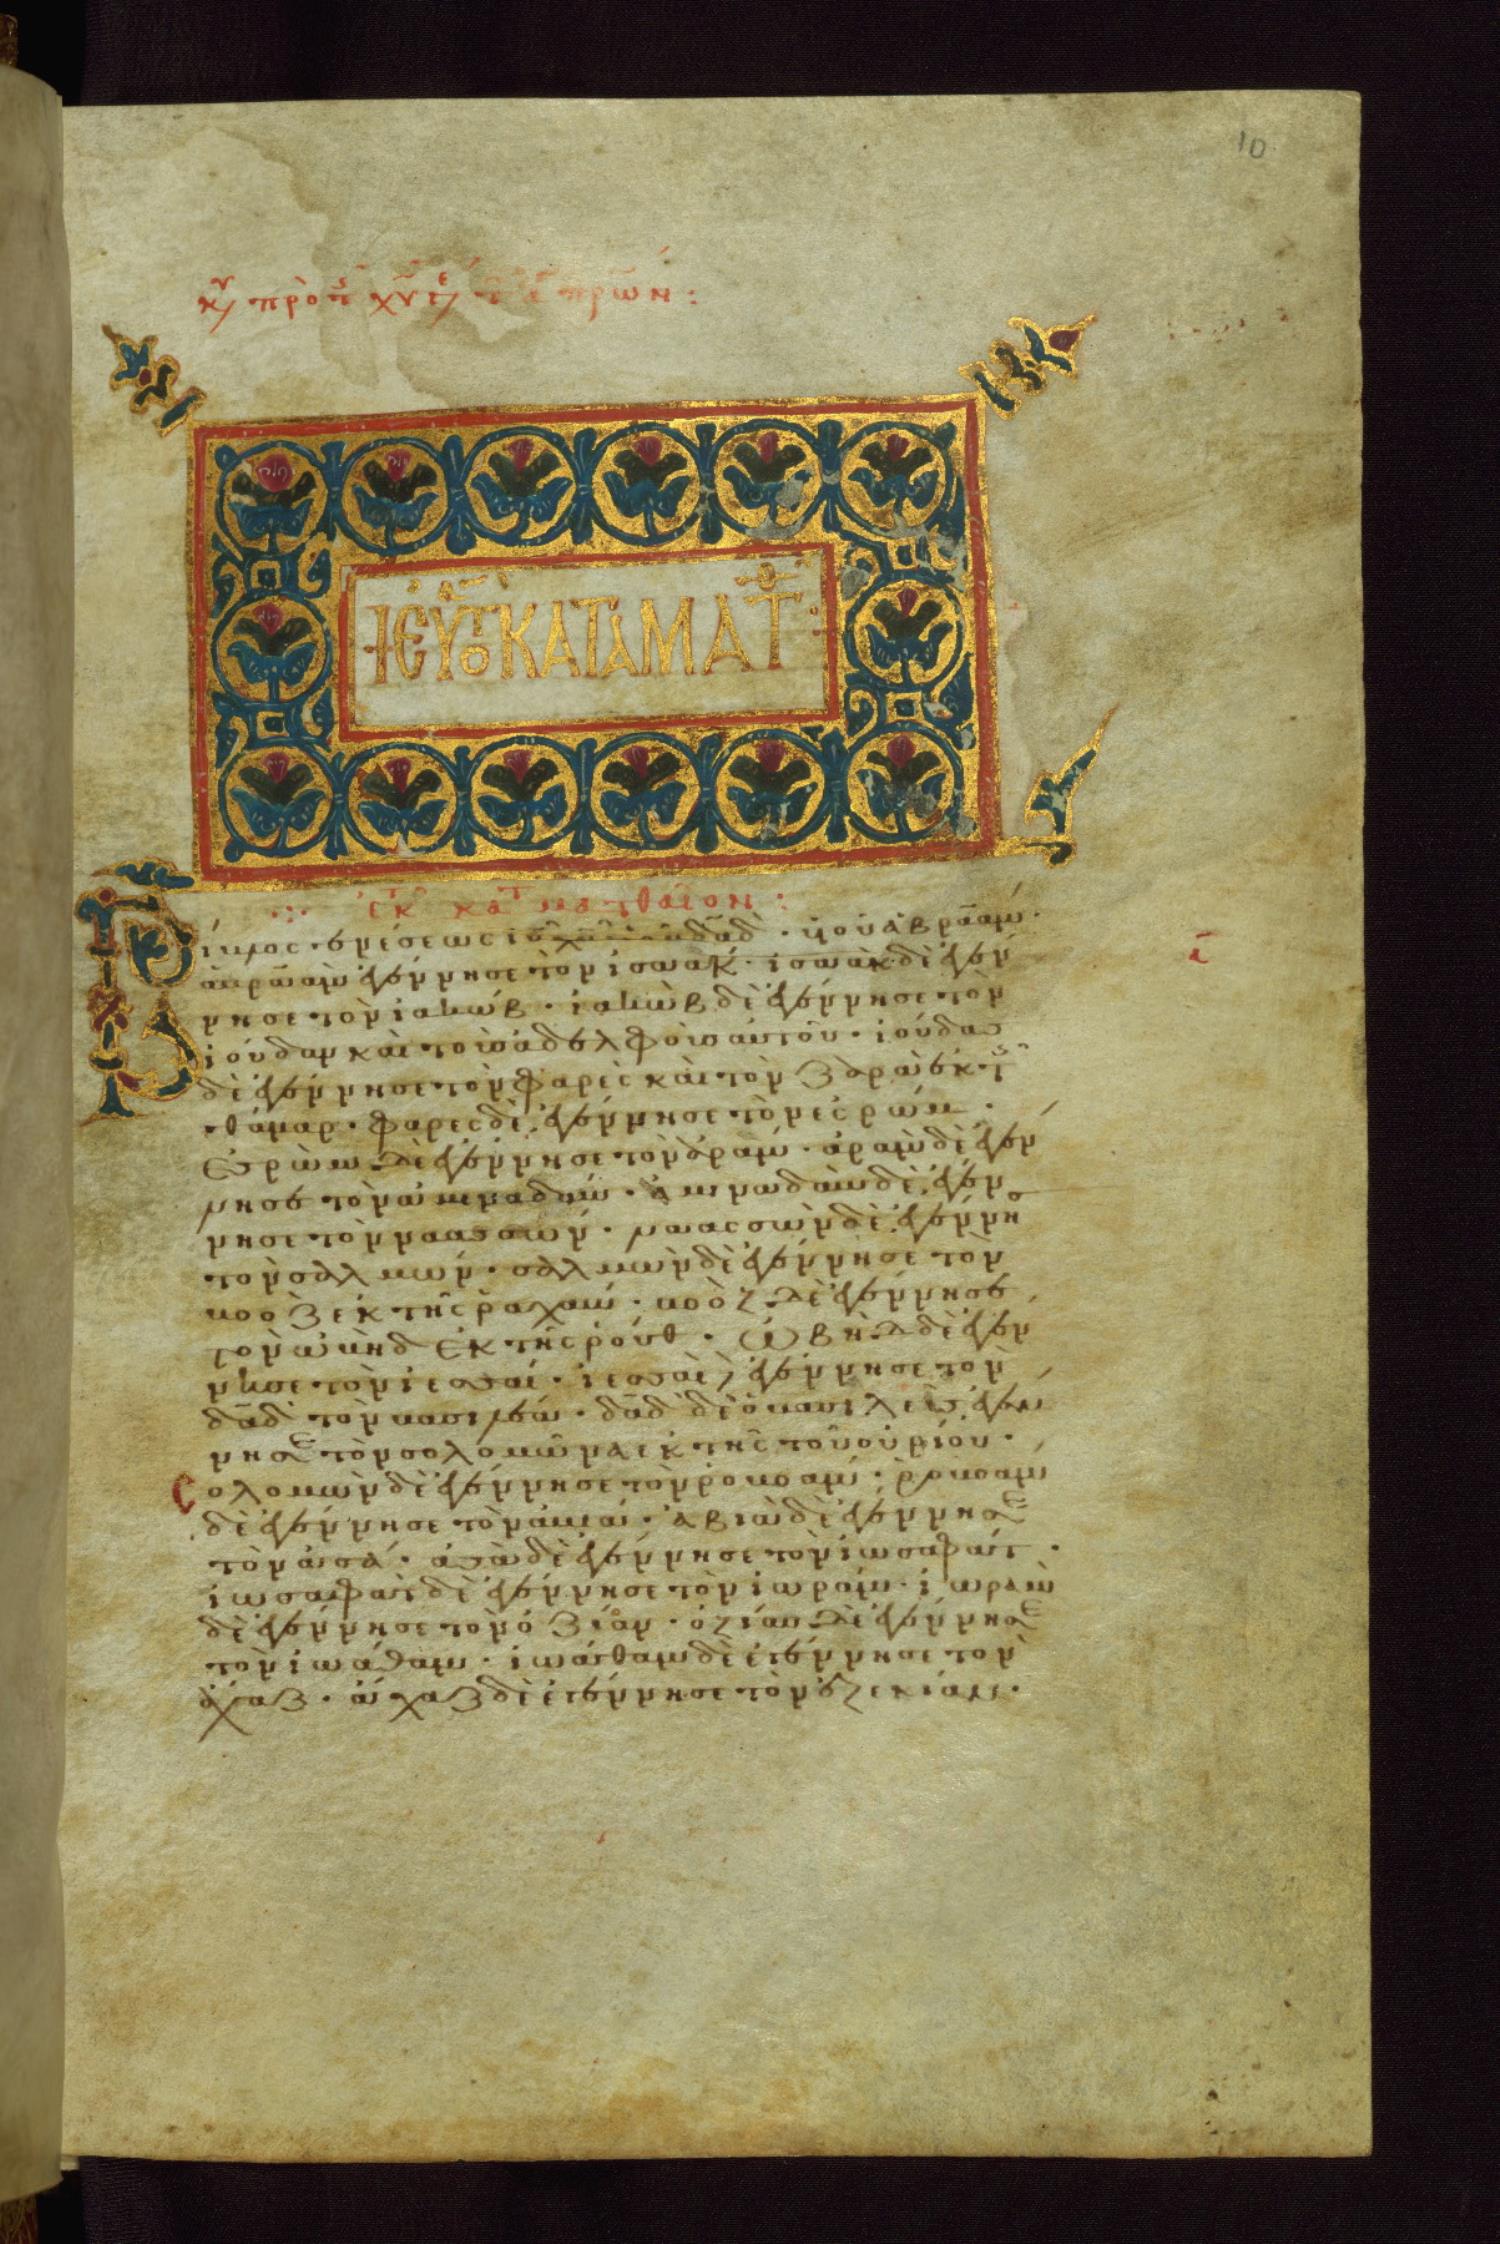 10
κυ πρὸ τ χυ γε πρωῒ :
ΕΥΑΓ ΚΑΤΑ ΜΑΤ
ἐκ κατ ματθαῖον :
Βίβλος γενέσεως ιυ χυ υυ δαδ · υἱοῦ ἀβραάμ ·
ἀβραὰμ ἐγέννησε τὸν ἰσαάκ · ἰσαὰκ δὲ ἐγέν
νησε τὸν ἰακώβ · ἰακὼβ δὲ ἐγέννησε τὸν
ἰούδαν καὶ τοὺς ἀδελφοὺς αὐτοῦ · ἰούδας
δὲ ἐγέννησε τὸν φαρὲς καὶ τὸν ζαρὰ ἐκ τῆς
θάμαρ · φαρὲς δὲ ἐγέννησε τὸν ἐσρώμ ·
Ἐσρὼμ δὲ ἐγέννησε τὸν ἀράμ · ἀρὰμ δὲ ἐγέν
νησε τὸν ἀμιναδάμ · ἀμιναδὰμ δὲ ἐγέν
νησε τὸν ναασσών · ναασσὼν δὲ ἐγέννησε
τὸν σαλμών · σαλμὼν δὲ ἐγέννησε τὸν
βοὸζ ἐκ τῆς ῥαχάμ · βοὸζ δὲ ἐγέννησε
τὸν ὠβὴδ ἐκ τῆς ῥούθ · ὠβὴδ δὲ ἐγέν
νησε τὸν ἰεσσαί · ἰεσσαὶ δὲ ἐγέννησε τὸν
δαδ τὸν βασιλέα · δαδ δὲ ὁ βασιλεὺς ἐγέν
νησε τὸν σολομῶνα ἐκ τῆς τοῦ οὐρίου ·
Σολομὼν δὲ ἐγέννησε τὸν ῥοβοάμ · ῥοβοὰμ
δὲ ἐγέννησε τὸν ἀβιά · ἀβιὰ δὲ ἐγέννησε
τὸν ἀσά · ἀσὰ δὲ ἐγέννησε τὸν ἰωσαφάτ ·
ἰωσαφὰτ δὲ ἐγέννησε τὸν ἰωράμ · ἰωρὰμ
δὲ ἐγέννησε τὸν ὀζίαν · ὀζίας δὲ ἐγέννησε
τὸν ἰωάθαμ · ἰωάθαμ δὲ ἐγέννησε τὸν
ἄχαζ · ἄχαζ δὲ ἐγέννησε τὸν ἐζεκίαν ·